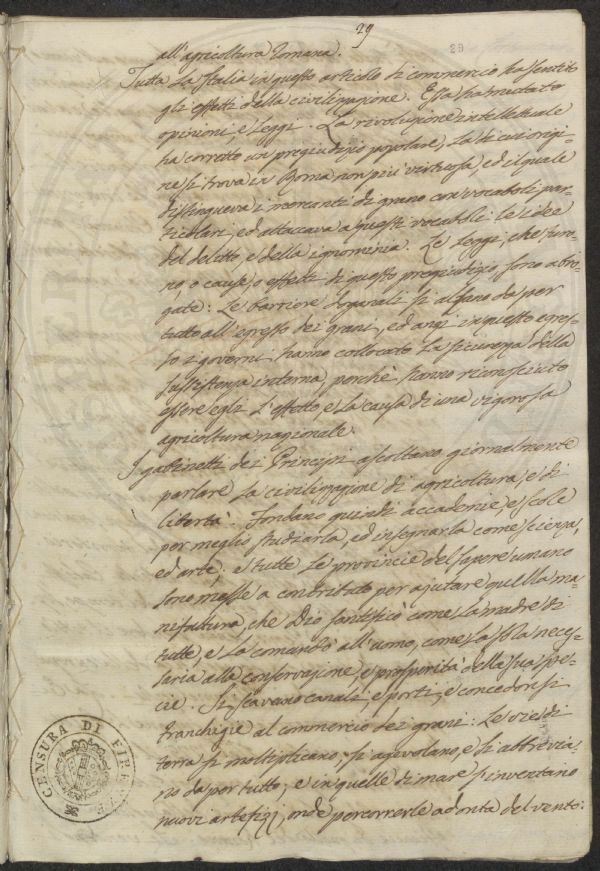 29
29
all'agricoltura Romana.
Tutta la Italia in questo articolo di commercio ha sentito
gli effetti della civilizzazione. Essa ha mutato
opinioni, e Leggi. La rivoluzione intellettuale
ha corretto un pregiudizio popolare, la di cui origi=
ne si trova in Roma non più virtuosa, ed il quale
distingueva i mercanti di grano con vocaboli par=
ticolari, ed attaccava a questi vocaboli le idee
del delitto, e della ignominia. Le Leggi, che furo=
no, o cause, o effetti di questo pregiudizio, sono abro=
gate: Le barriere Doganali si alzano da per
tutto all'egresso dei grani, ed anzi in questo egres=
so i governi hanno collocato la sicurezza della
sussistenza interna, perchè hanno riconosciuto
essere egli l'effetto, e la causa di una vigorosa
agricoltura nazionale.
I gabinetti dei Principi ascoltano giornalmente
parlare la civilizzazione di agricoltura, e di
libertà. Fondano quindi accademie, e scole
per meglio studiarla, ed insegnarla come scienza,
ed arte, e tutte le provincie del sapere umano
sono messe a contributo per ajutare quella ma=
nifattura, che Dio santificò come la madre di
tutte, e la comandò all'uomo, come la sola neces=
saria alla conservazione, e prosperità della sua spe=
cie. Si scavano canali, e porti, e concedonsi
franchigie al commercio dei grani: Le vie di
terra si moltiplicano, si agevolano, e si abbrevia=
no da per tutto; e in quelle di mare s'inventano
nuovi artefizj, onde percorrerle a donta del vento:
CENSURA DI FIRENZE